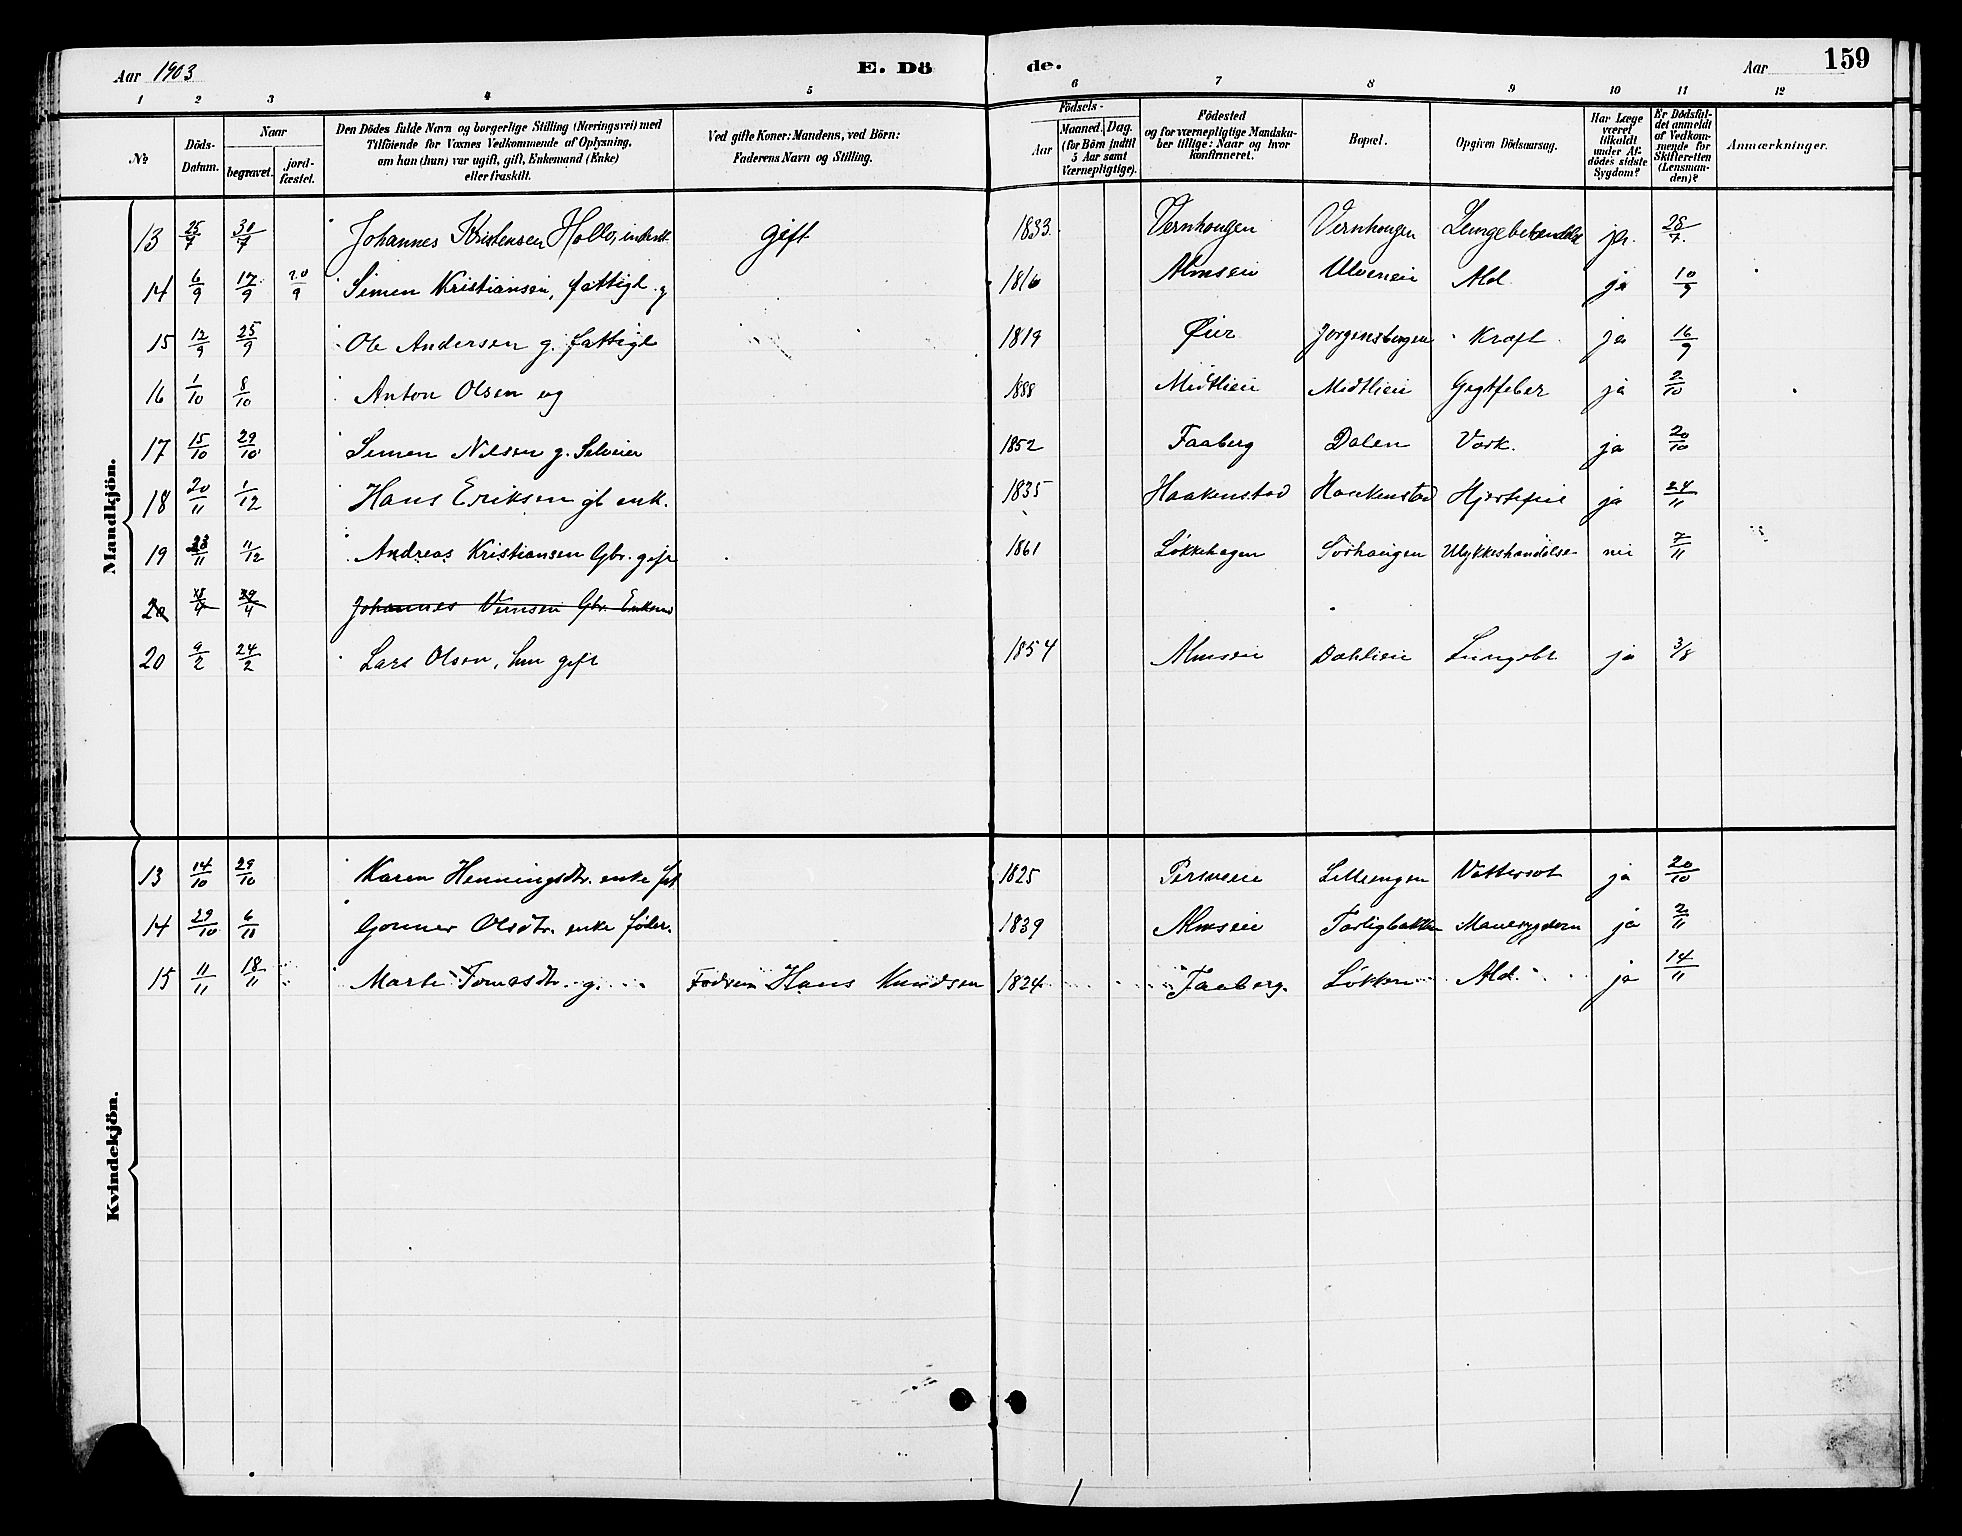 Aar 1903 E. Döde. Aar 159
1 2 3 4 5 6 7 8 9 10 11 12
№ Döds-Datum. Naar begravet. jordfæstet. Den Dödes fulde Navn og borgerlige Stilling (Næringsvei) med Tilföiende for Voxnes Vedkommende af Oplysning, om han (hun) var ugift, gift, Enkemand (Enke) eller fraskilt. Ved gifte Koner: Mandens, ved Börn: Faderens Navn og Stilling. Födsels- Aar Maaned. Dag. (for Börn indtil 5 Aar samt Værnepligtige). Födested og for værnepligtige Mandskaber tillige: Naar og hvor konfirmeret. Bopæl. Opgiven Dödsaarsag. Har Læge været tilkaldt under Afdödes sidste Sygdom? Er Dödsfaldet anmeldt af Vedkommende for Skifteretten (Lensmanden)? Anmærkninger.
Mandkjön.
13 25/7 30/7 Johannes Kristensen gift 1833 Vernhougen Vernhougen ja. 28/7.
14 6/9 17/9 20/9 Simen Kristiansen, fattigl. g 1816 Almseie Ulveneie Ald ja 10/9
15 12/9 25/9 Ole Andersen g. fattigl 1819 Øier Jorgensbergen Kræft ja 16/9
16 1/10 8/10 Anton Olsen ug 1888 Midtlieie Midtlieie Gigtfeber ja 2/10
17 15/10 29/10 Simen Nilsen g. Selveier 1852 Faaberg Dalen Værk. ja 20/10
18 20/11 1/12 Hans Eriksen gb enk. 1835 Haakenstad Haakenstad Hjertefeil ja 24/11
19 23/11 11/12 Andreas Kristiansen Gbr. gift 1861 Løkkehagen Sørhaugen Ulykkeshændelse nei 7/11
20 29/4 Johannes Gbr. Enkem
20 9/2 24/2 Lars Olsen, hm gift 1854 Almseie Dahlieie Lungebt ja 3/8
Kvindekjön.
13 14/10 29/10 Karen Henningsdtr. enke fat 1825 Lilleengen Vattersot ja 20/10
14 29/10 6/11 Olsdtr. enke føder. 1839 Almseie Mavesygdom ja 2/11
15 11/11 18/11 Marte Tomasdtr. g. Hans Knudsen 1824 Faaberg. Løkken Ald. ja 14/11